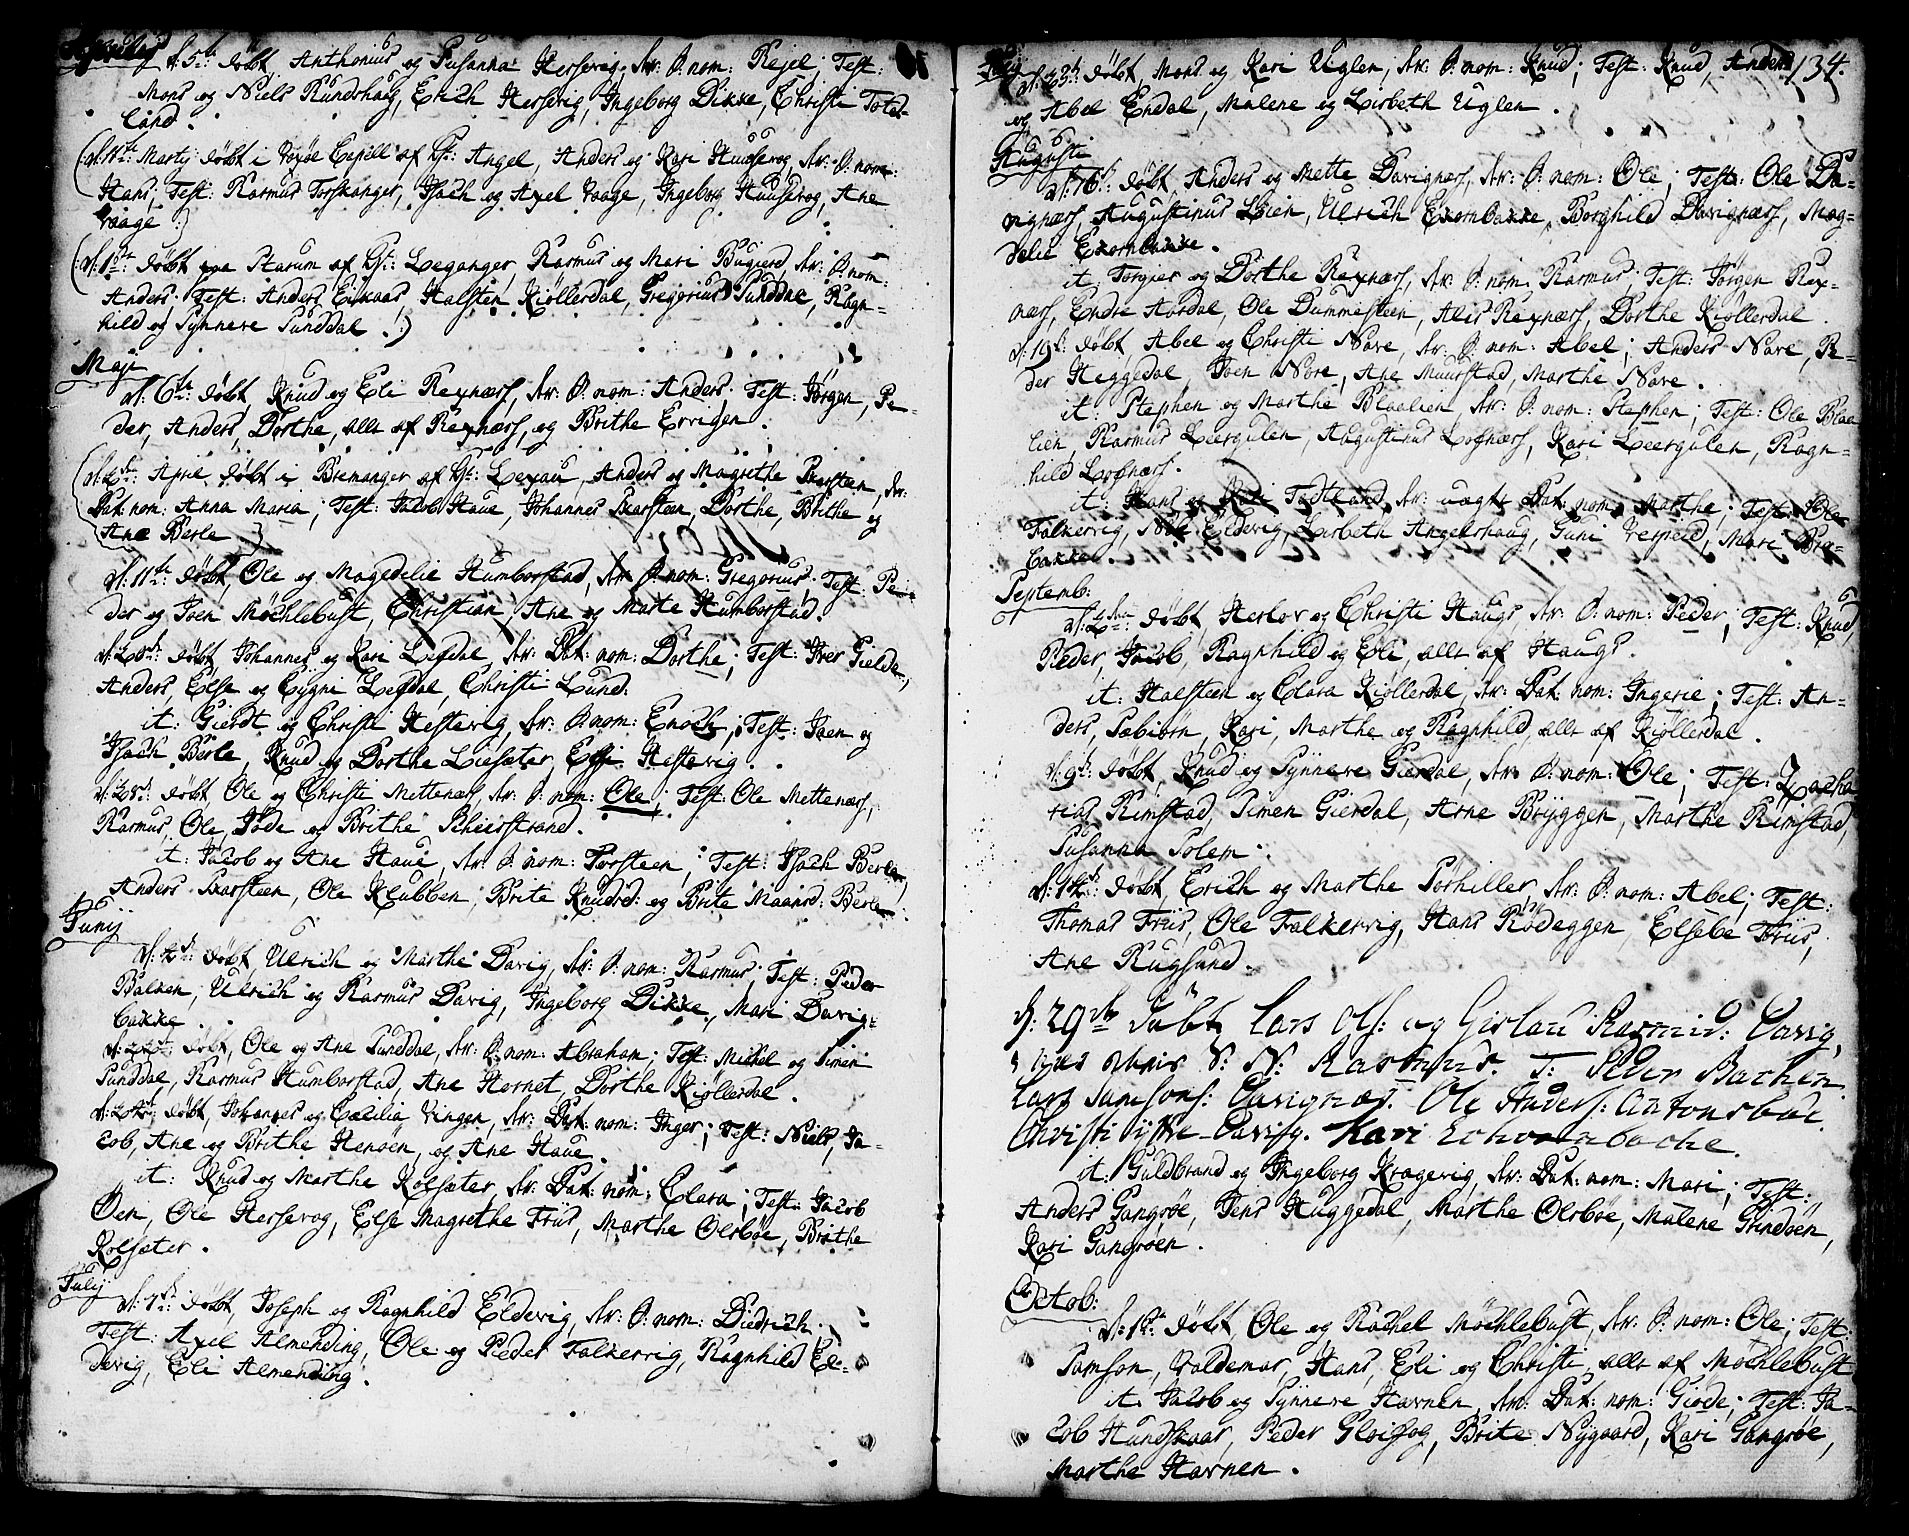 Aprilis
d: 5te døbt Anthonius og Susanna Hersevig, der: S: nom: Rejel; Test:
Mons og Niels Rundehaug, Erich Hersevig, Ingeborg Dikke, Christi Totland.
land.
(d: 11te Martij døbt i Vogsøe Capell af Hr: Angel, Anders og Kari Huusevog, der: S: nom:
Hans, Test: Rasmus Torskanger, Isach og Axel Vaage, Ingeborg Huusevog, Ane
Vaage :)
(d: 1ste døbt paa Starum af Hr: Leganger, Rasmus og Mari Bugierd, der: S: nom:
Anders. Test: Anders Eikaas, Halsten Kiøllerdal, Gregorius Sunddal, Ragn=
hild og Synnere Sunddal :)
Maji
d: 6te døbt, Knud og Eli Rexnæss, der: S: nom: Anders. Test: Jørgen, Pe=
der, Anders, Dorthe, alle af Rexnæss, og Brithe Errigen.
(d: April døbt i Bremanger af Hr: Lexau, Anders og Magrethe Skarsteen, der:
Dat: nom: Anna Maria; Test: Jacob Haue, Johannes Skarsteen, Dorthe, Brithe og
Ane Berle :)
d: 11te døbt, Ole og Magedelie Humborstad, der: S: nom: Gregorius. Test: Pe=
der og Joen Møchlebust, Christian, Ane og Marte Humborstad.
d: 20de døbt, Johannes og Kari Lefdal, der: Dat: nom: Dorthe; Test: Iver Gielde,
Anders, Else og Cygni Lefdal, Christi Lund.
it: Gierdt og Christi Hestevig, der: S: nom: Enoch; Test: Joen og
Isach Berle, Knud og Dorthe Liesæter, Elsi Hestevig.
d: 28de døbt, Ole og Christi Mettenæss, der: S: nom: Ole; Test: Ole Mettenæss,
Rasmus, Ole, Jøde og Brithe Rheerstrand.
it: Jacob og Ane Haue, der: S: nom: Torsteen; Test: Isach Berle,
Anders Skarsteen, Ole Klubben, Brite Knudsd: og Brite Maansd: Berle.
Junij
d: 2de døbt, Ulrich og Marthe Davig, der: S: nom: Rasmus; Test: Peder
Balken, Ulrich og Rasmus Davig, Ingeborg Dikke, Mari Davig=
bakke.
døbt, Ole og Ane Sunddal, der: S: nom: Abraham; Test: Michel og Simen
Sunddal, Rasmus Humborstad, Ane Hornet, Dorthe Kiøllerdal.
d: døbt, Johannes og Cæcilia Vingen, der: Dat: nom: Inger; Test: Niels, Ja=
cob, Ane og Brithe Henøen, og Ane Haue.
it: Knud og Marthe Rolsæter, der: Dat: nom: Clara; Test: Jacob
Øen, Ole Hersevog, Else Magrethe Friis, Marthe Olsbøe, Brithe
Rolsæter.
Julij
d: 7de døbt, Joseph og Ragnhild Eldevig, der: S: nom: Diedrich.
Test: Axel Almending, Ole og Peder Falkevig, Ragnhild El=
devig, Eli Almending.
134.
d: 23de døbt, Mons og Kari Uglen, der: S: nom: Knud; Test: Knud, Anders
og Abel Endal, Malene og Lisbeth Uglen.
Augusti
d: 16de døbt, Anders og Mette Davignæss, der: S: nom: Ole; Test: Ole Da=
vignæss, Augustinus Løien, Ulrich Exornbakke, Borghild Davignæss, Mag=
delie Exornbakke.
it: Torgier og Dorthe Rexnæss, der: S: nom: Rasmus; Test: Jørgen Rex=
næss, Endre Aardal, Ole Dummesteen, Alis Rexnæss, Dorthe Kiøllerdal.
d: 19de døbt, Abel og Christi Nore, der: S: nom: Abel; Anders Nore, Pe=
der Heggedal, Joen Nore, Ane Muurstad, Marthe Nore.
it: Stephen og Marthe Blaalien, der: S: nom: Stephen; Test: Ole Blaa
lien, Rasmus Leergulen, Augustinus Lofnæss, Kari Leergulen, Ragn=
hild Lofnæss.
it: Hans og Kari Tødtland, der: uægte Dat: nom: Marthe; Test: Ole
Falkevig, Nils Eldevig, Lisbeth Angelshaug, Guni Verpeid, Mari Bre=
bakke.
Septemb:
døbt, Herlov og Christi Haugs, der: S: nom: Peder; Test: Knud,
Peder, Jacob, Ragnhild og Eli, alle af Haugs.
it: Halsteen og Clara Kiøllerdal, der: Dat: nom: Ingerie; Test: An=
ders, Sæbiørn, Kari, Marthe og Ragnhild, alle af Kiøllerdal.
d: 9de døbt, Knud og Synnere Gierdal, der: S: nom: Ole; Test: Zacha
rias Rimstad, Simen Gierdal, Arne Bryggen, Marthe Rimstad,
Susanna Solem.
døbt, Erich og Marthe Sørhiller, der: S: nom: Abel; Test:
Thomas Friis, Ole Falkevig, Hans Rødeggen, Elsebe Friis,
Ane Rugsund.
d: 29de Døbt Lars Ols: og Giølau Rasmusd: Davig,
S: N: Rasmus. T: Peder Bachen
Lars Samsons: Davignæs. Ole Anders: Antonsbue
Christi Davig. Kari Echornbache.
it: Guldbrand og Ingeborg Kragevig, der: Dat: nom: Mari; Test:
Anders Gangsøe, Jens Huggedal, Marthe Olsbøe, Malene Grindøen,
Kari Gangsøen.
Octob:
døbt, Ole og Rachel Møchlebust, der: S: nom: Ole; Test:
Samson, Valdemar, Hans, Eli og Christi, alle af Møchlebust
it: Jacob og Synnere Havnen, der: Dat: nom: Giøde; Test: Ja=
cob Hundskaar, Peder Gloisvog, Brite Nygaard, Kari Gangsøe,
Marthe Havnen.